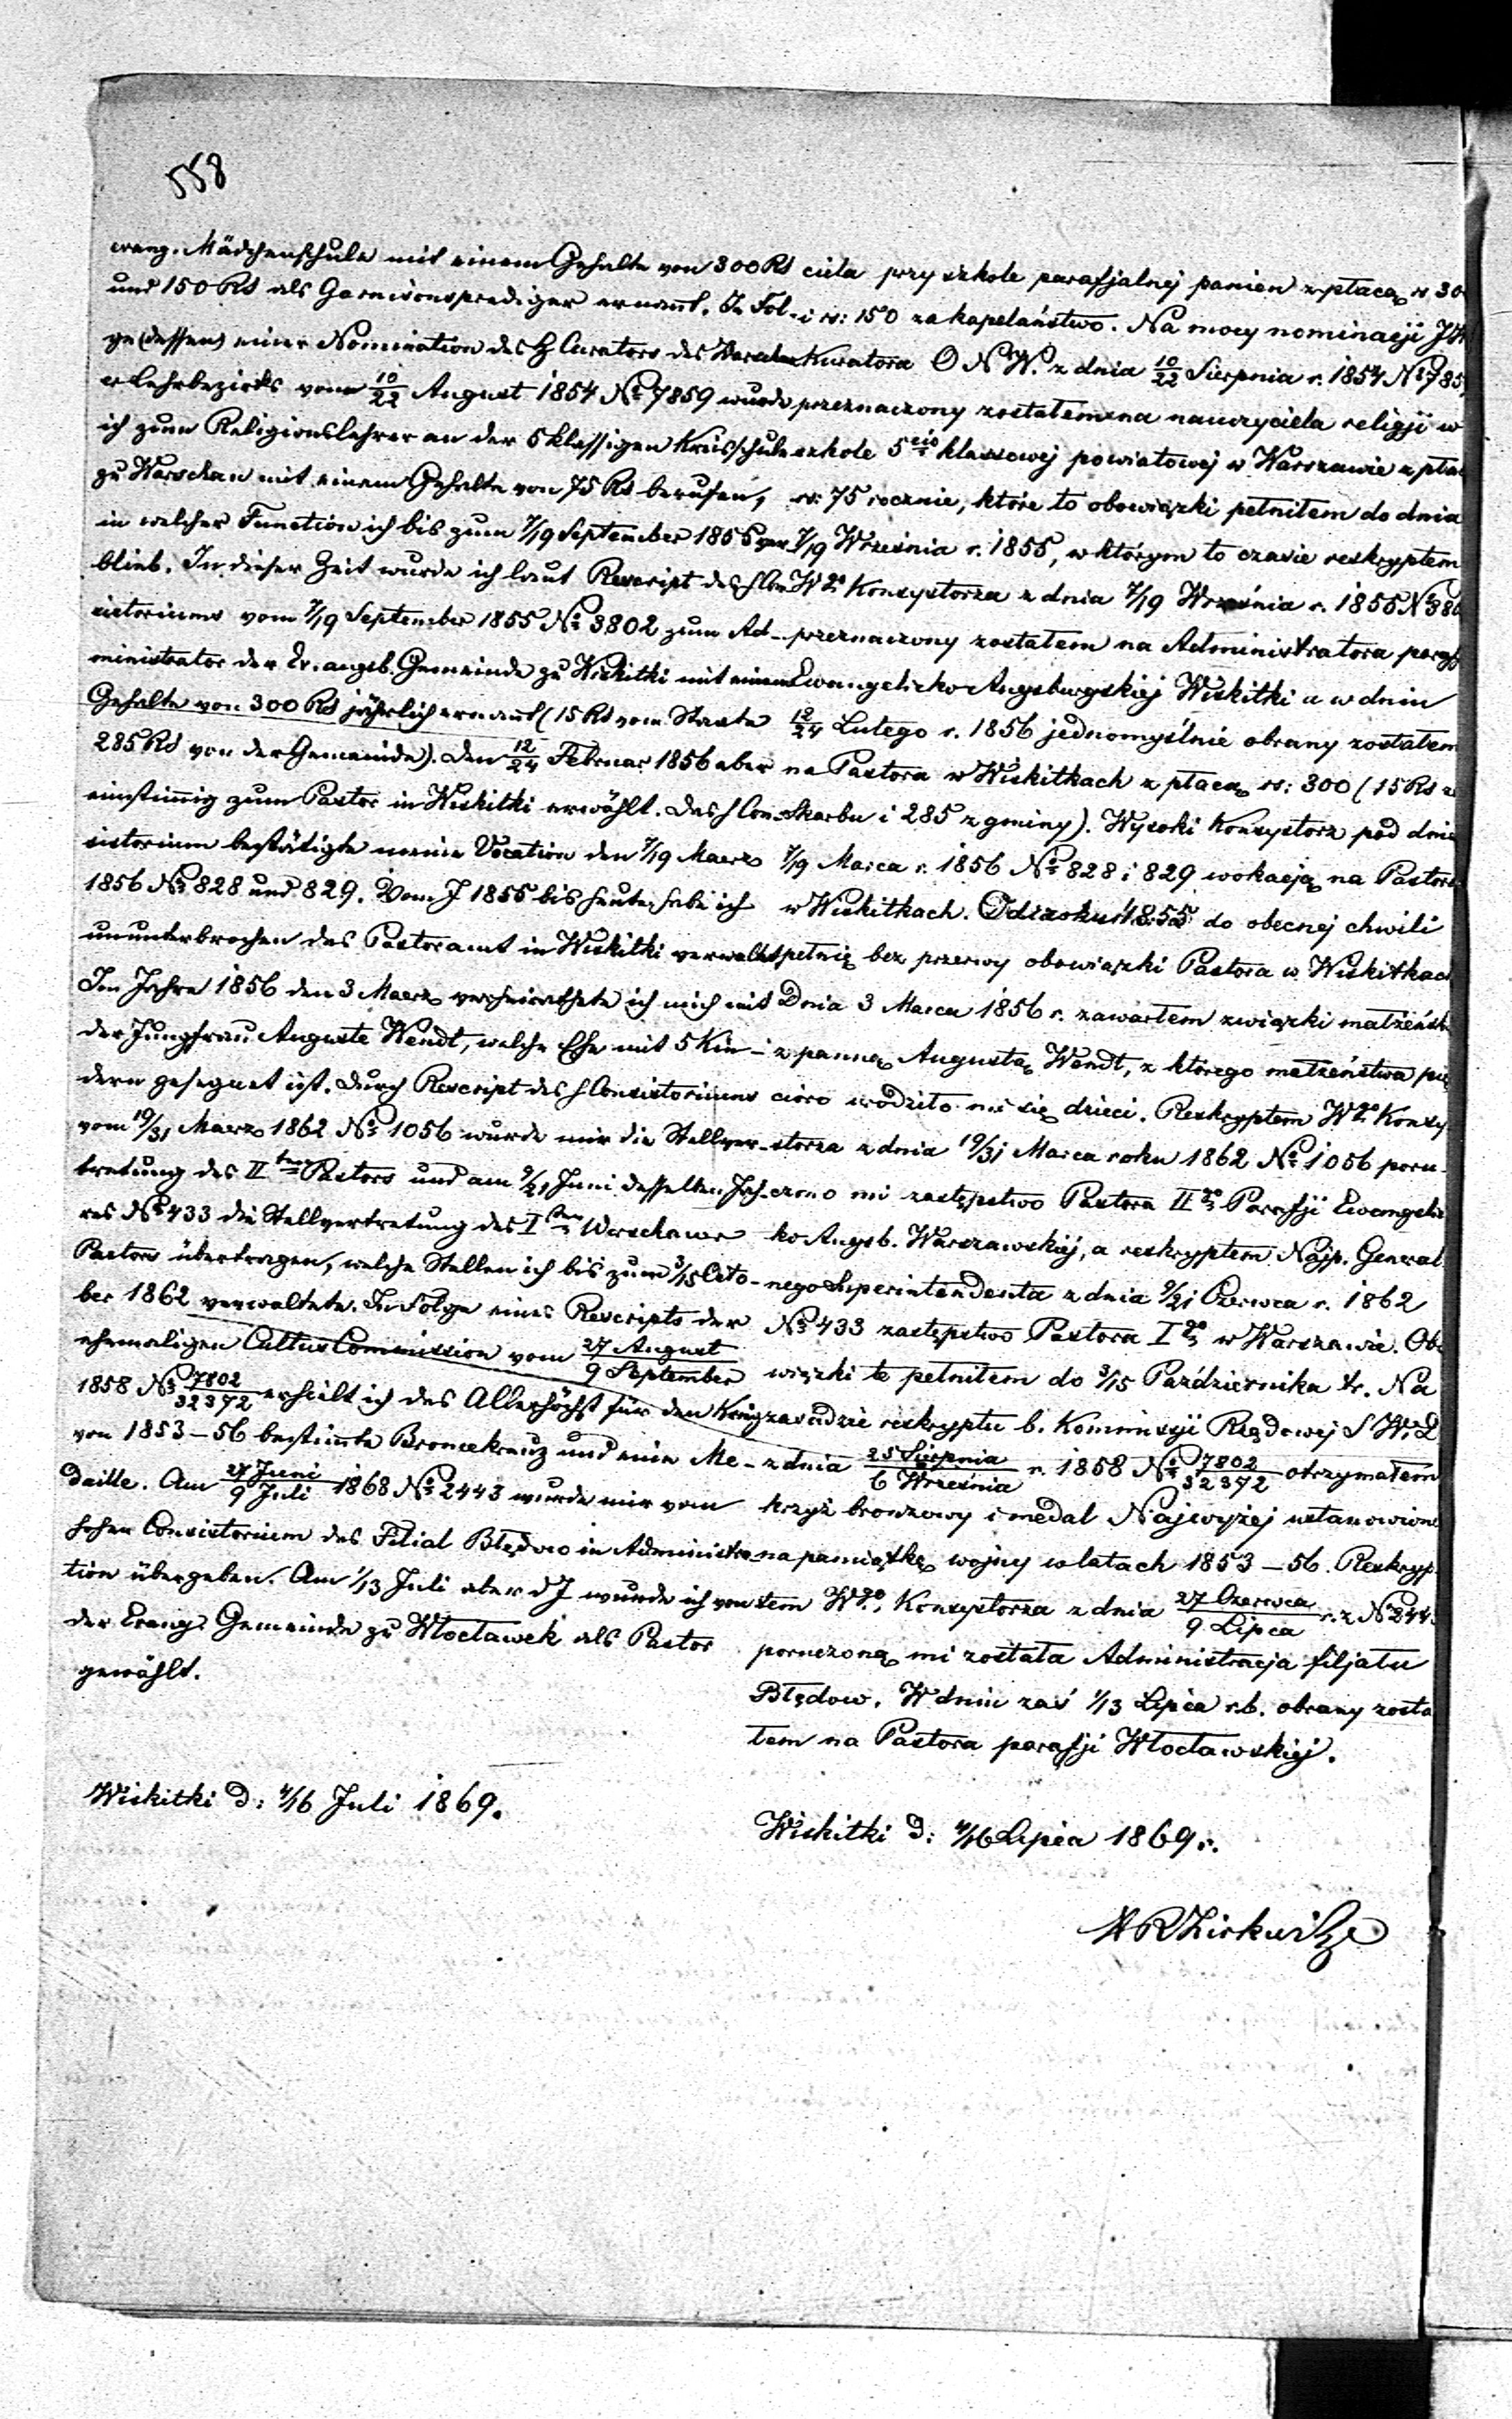 558
evang. Mädchenschule mit einem Gehalte von 300 Rs
und 150 Rs als Garnisonsprediger ernannt. In Fol-
ge (dessen) einer Nomination des H Curators des Warschau
er Lehrbezirks vom 10/22 August 1854 No 7859 wurde
ich zum Religionslehrer an der 5 klassigen Kreisschule
zu Warschau mit einem Gehalte von 75 Rs berufen,
in welcher Function ich bis zum 7/19 September 1855 ver
blieb. In dieser Zeit wurde ich laut Rescript des h Con
sistoriums vom 7/19 September 1855 No 3802 zum Ad-
ministrator der Ev. augsb. Gemeinde zu Wiskitki mit einem
Gehalte von 300 Rs jährlich ernannt (15 Rs vom Staate
285 Rs von der Gemeinde). Den 12/24 Februar 1856 aber
einstimmig zum Pastor in Wiskitki erwählt. Das h Con-
sistorium bestätigte meine Vocation den 7/19 Maerz
1856 No 828 und 829. Vom J 1855 bis heute habe ich
ununterbrochen das Pastoramt in Wiskitki verwaltet
Im Jahre 1856 den 3 Maerz verheirathete ich mich mit
der Jungfrau Auguste Wendt, welche Ehe mit 5 Kin-
dern gesegnet ist. Durch Rescript des h Consistoriums
vom 19/31 Maerz 1862 No 1056 wurde mir die Stellver-
tretung des II ten Pastors und am 9/21 Juni desselben Jah-
res No 433 die Stellvertretung des I ten Warschauer
Pastors übertragen, welche Stellen ich bis zum 3/15 Octo-
ber 1862 verwaltete. In Folge eines Rescripts der
ehemaligen Cultus Commission vom 27 August/9 September
1858 No 7802/32372 erhielt ich das Allerhöchst für den Krieg
von 1853–56 bestimmte Broncekreuz und eine Me-
daille. Am 27 Juni/9 Juli 1868 No 2443 wurde mir vom
hohen Consistorium das Filial Błędow in Administra
tion übergeben. Am 1/13 Juli aber d J wurde ich von
der Evang. Gemeinde zu Włocławek als Pastor
gewählt.
Wiskitki d: 4/16 Juli 1869.
ciela przy szkole parafjalnej panien z płacą rs 30
i rs: 150 za kapelaństwo. Na mocy nominacji JW
Kuratora O N W. z dnia 10/22 Sierpnia r. 1854 No 785
przeznaczony zostałem na nauczyciela religji w
szkole 5cio klassowej powiatowej w Warszawie z pła
rs: 75 rocznie, które to obowiązki pełniłem do dnia
7/19 Września r. 1855, w którym to czasie reskryptem
Wgo Konsystorza z dnia 7/19 Września r. 1855 No 380
przeznaczony zostałem na Administratora paraf
Ewangelicko Augsburgskiej Wiskitki a w dniu
12/24 Lutego r. 1856 jednomyślnie obrany zostałem
na Pastora w Wiskitkach z płacą rs: 300 (15 Rs z
Skarbu i 285 z gminy). Wysoki Konsystorz pod dnie
7/19 Marca r. 1856 No 828 i 829 wokacją na Pastora
w Wiskitkach. Od roku 1855 do obecnej chwili
pełnię bez przerwy obowiązki Pastora w Wiskitkach
Dnia 3 Marca 1856 r. zawarłem związki małżeńsk
z panną Augustą Wendt, z którego małżeństwa pię
cioro urodziło mi się dzieci. Reskryptem Wgo Konsy
storza z dnia 19/31 Marca roku 1862 No 1056 poru-
czono mi zastępstwo Pastora IIgo Parafji Ewangelic
ko Augsb. Warszawskiej, a reskryptem Najp. General
nego Superintendenta z dnia 9/21 Czerwca r. 1862
No 433 zastępstwo Pastora Igo w Warszawie. Obo
wiązki te pełniłem do 3/15 Października tr. Na
zasadzie reskryptu b. Kommissji Rządowej S W. D
z dnia 25 Sierpnia/6 Września r. 1858 No 7802/32372 otrzymałem
krzyż bronzowy i medal Najwyżej ustanowione
na pamiątkę wojny w latach 1853–56. Reskryp
tem Wgo. Konsystorza z dnia 27 Czerwca/9 Lipca r. z No 244
poruczoną mi została Administracja filjału
Błędow. W dniu zaś 1/13 Lipca r.b. obrany zosta
łem na Pastora parafji Włocławskiej.
Wiskitki d: 4/16 Lipca 1869 r.